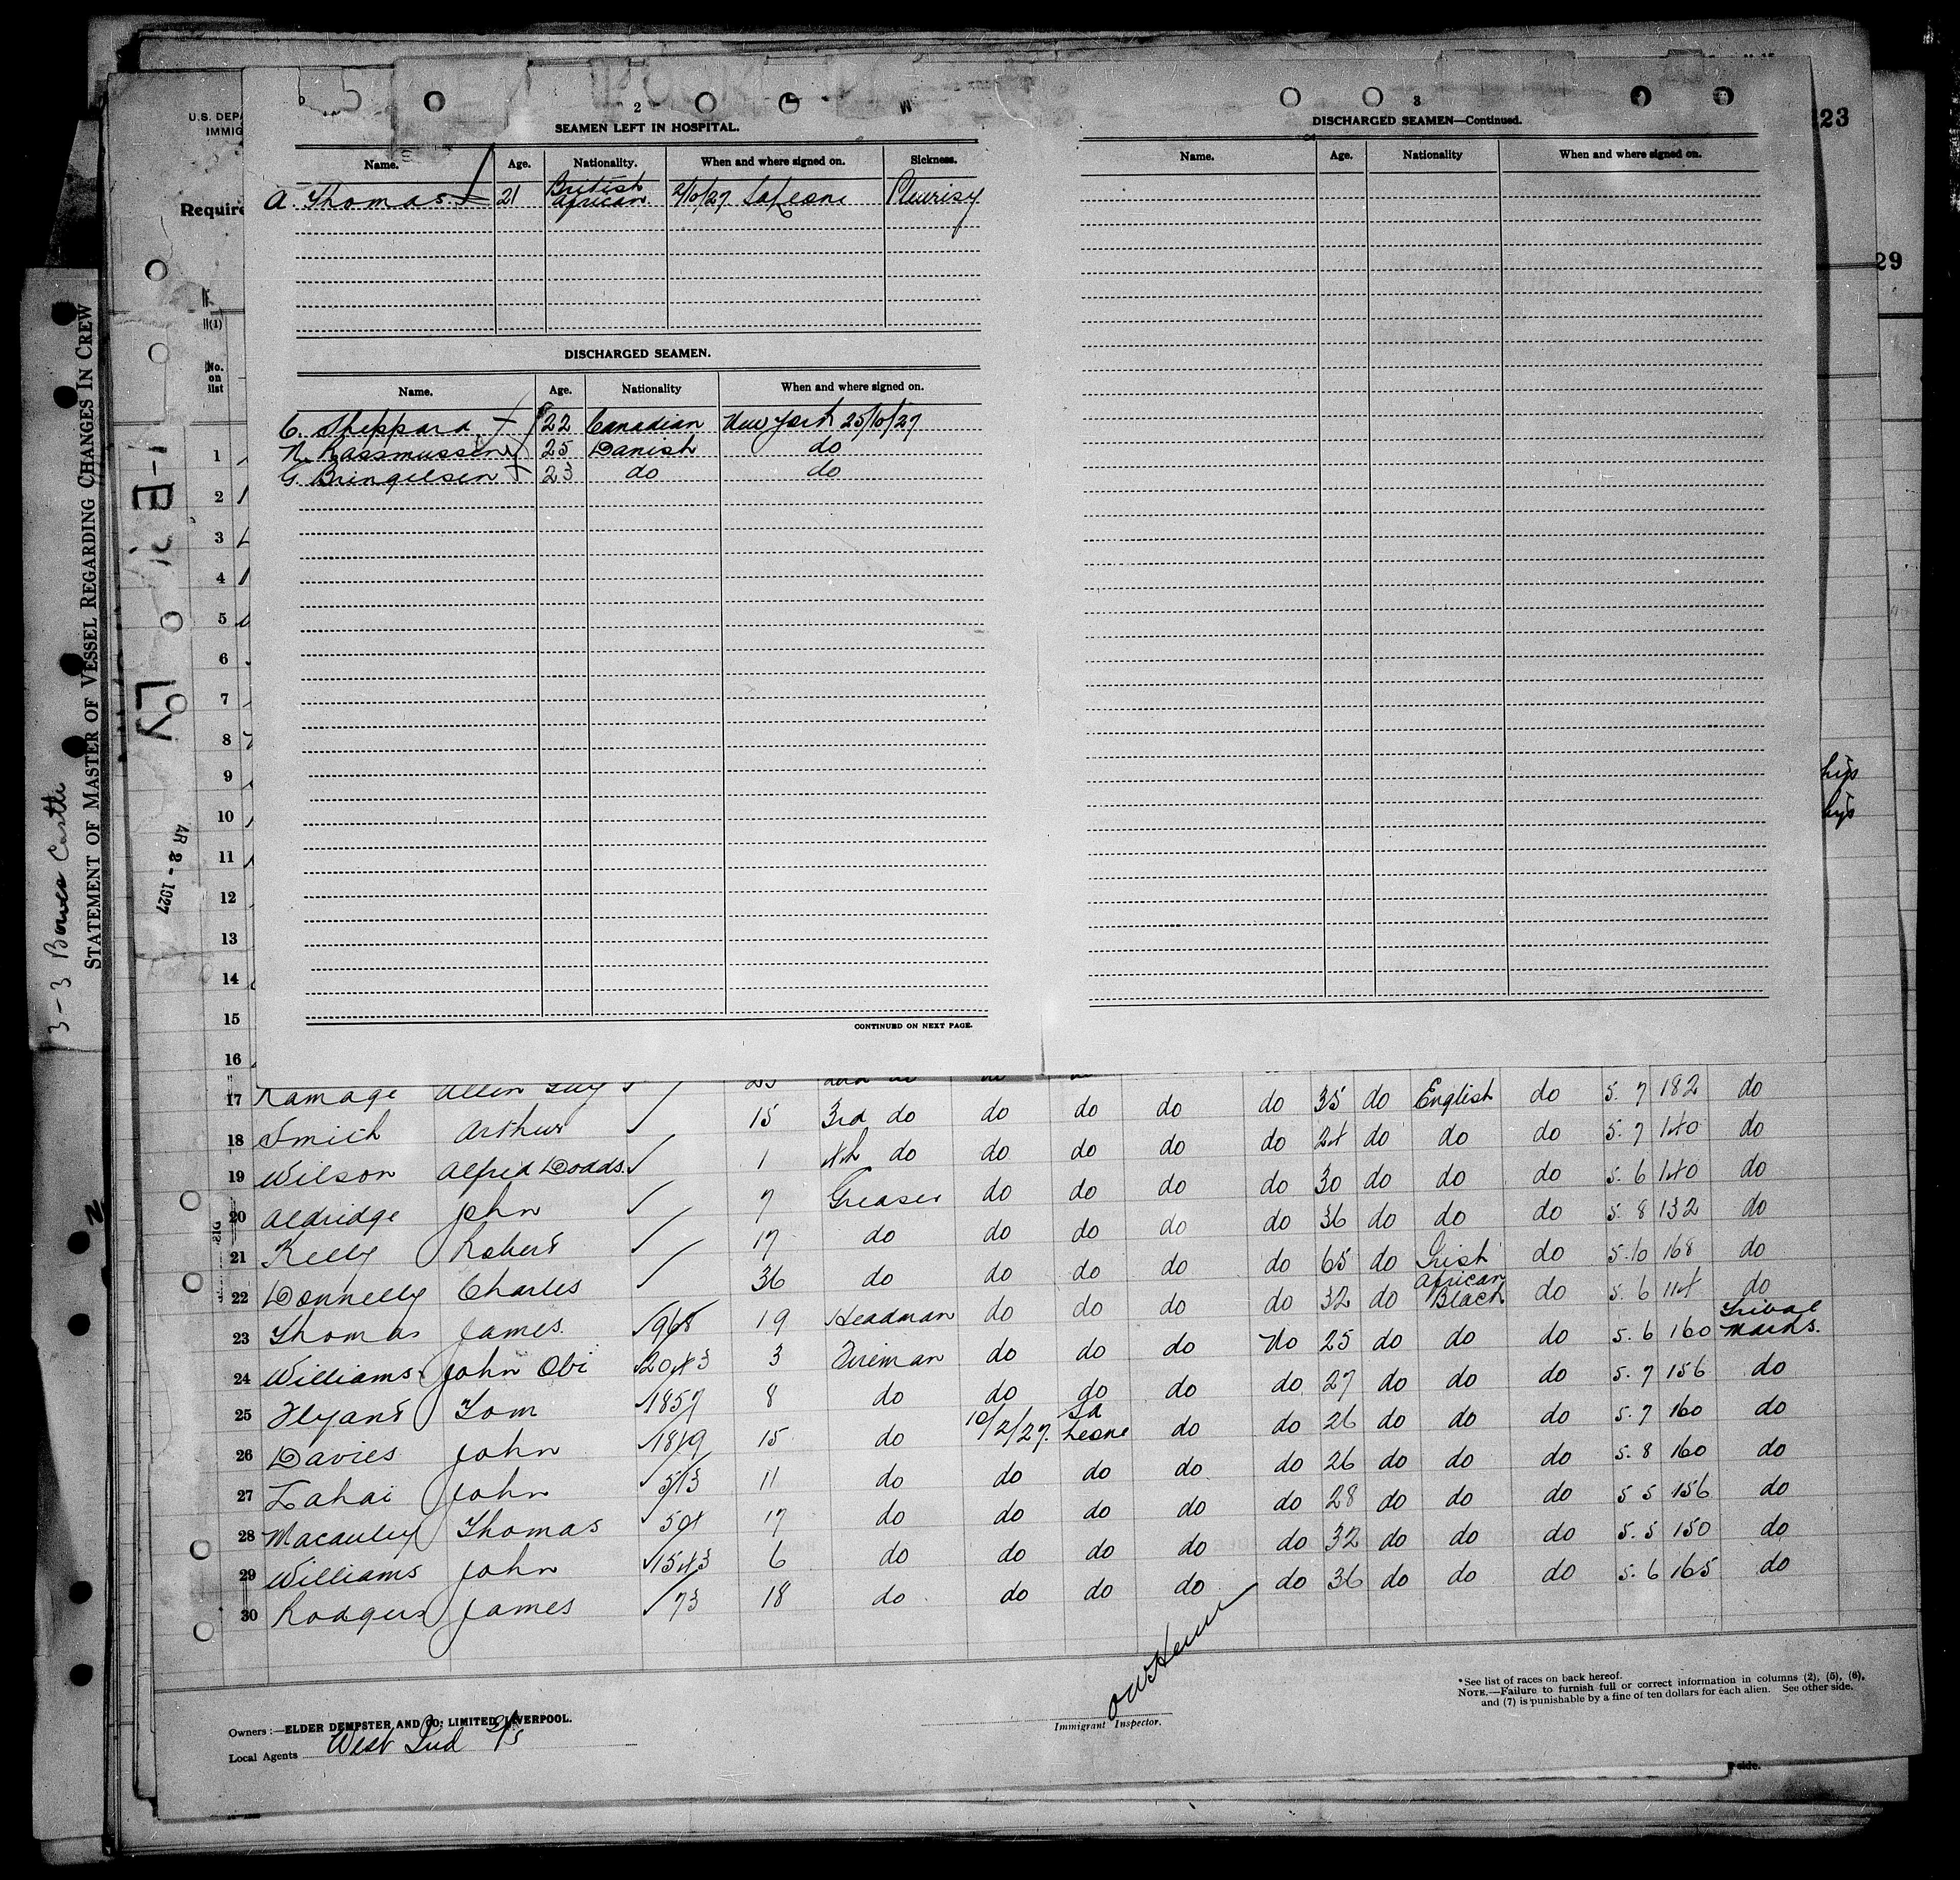 2
SEAMEN LEFT IN HOSPITAL.
Name. Age. Nationality. When and where signed on. Sickness.
A. Thomas. 21 British African 2/10/27 Sa Leone Pleurisy
DISCHARGED SEAMEN.
Name. Age. Nationality When and where signed on.
C. Sheppard 22 Canadian New York 25/10/27
N. Rassmussen 25 Danish do
G. Bringelsen 23 do do
CONTINUED ON NEXT PAGE.
3
DISCHARGED SEAMEN—Continued.
Name. Age. Nationality When and where signed on.
23
29
U.S. DEPA
IMMIG
Require
(1)
No. on list
1
2
3
4
5
6
7
8
9
10
11
12
13
14
15
16
STATEMENT OF MASTER OF VESSEL REGARDING CHANGES IN CREW
3-3 Bowes Castle
AR 2 - 1927
17 Ramage Allen Guy
18 Smith Arthur 15 3rd do do do do do 35 do English do 5. 7 182 do
19 Wilson Alfred Dodds. 1 4th do do do do do 24 do do do 5. 7 140 do
20 Aldridge John 7 Greaser do do do do 30 do do do 5. 6 140 do
21 Kelly Robert 17 do do do do do 36 do do do 5. 8 132 do
22 Donnelly Charles 36 do do do do do 65 do Irish do 5. 10 168 do
23 Thomas James. 968 19 Headman do do do do 32 do African Black do 5. 6 114 do
24 Williams John Obi 2043 3 Fireman do do do No 25 do do do 5. 6 160 Tribal Marks.
25 Flyant Tom 1857 8 do do do do do 27 do do do 5. 7 156 do
26 Davies John 1819 15 do 10/2/27. Sa Leone do do 26 do do do 5. 7 160 do
27 Lahai John 513 11 do do do do do 26 do do do 5. 8 160 do
28 Macauley Thomas 504 17 do do do do do 28 do do do 5 5 156 do
29 Williams John 1543 6 do do do do do 32 do do do 5. 5 150 do
30 Rodgers James 73 18 do do do do do 36 do do do 5. 6 165 do
Owners :—ELDER DEMPSTER AND CO: LIMITED, LIVERPOOL.
Local Agents West Ind
Immigrant Inspector.
*See list of races on back hereof.
NOTE.—Failure to furnish full or correct information in columns (2), (5), (6),
and (7) is punishable by a fine of ten dollars for each alien. See other side.
side.